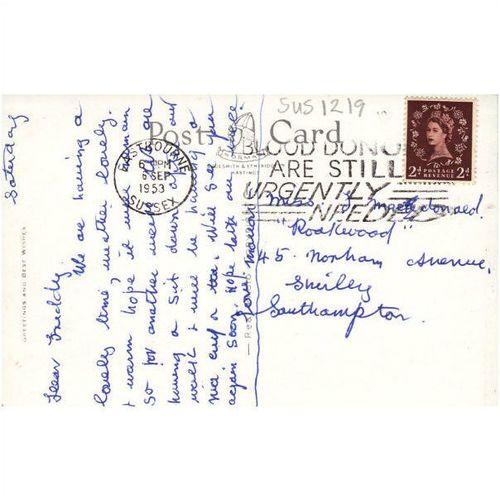 SUS 1219
Post Card
EASTBOURNE
6 PM
SEP
1953
SUSSEX
BLOOD DONORS
ARE STILL
URGENTLY
NEEDED
2d POSTAGE REVENUE 2d
GREETINGS AND BEST WISHES
Saturday
Dear Freddy.
We are having a
lovely time, weather lovely.
& warm hope it will remain
so for another week. We are
having a sit down after our
walk & will be having a
nice cup of tea. Will see you
again soon. Hope
Miss Macdonald.
"Rookwood"
45. Norham Avenue,
Shirley
Southampton.